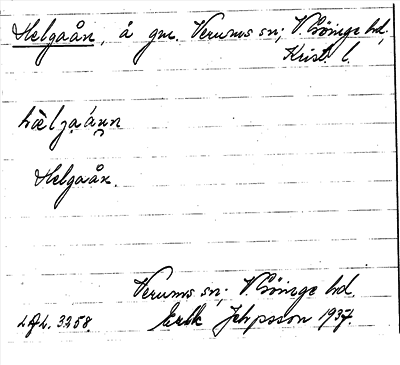 Helgaån, å gm. Verums sn; V. Göinge hd,
Krist. l.
hæ̀lgaáụn
Helgaån.
Verums sn; V. Göinge hd.
L.A.L. 3258. Erik Jeppsson 1937.